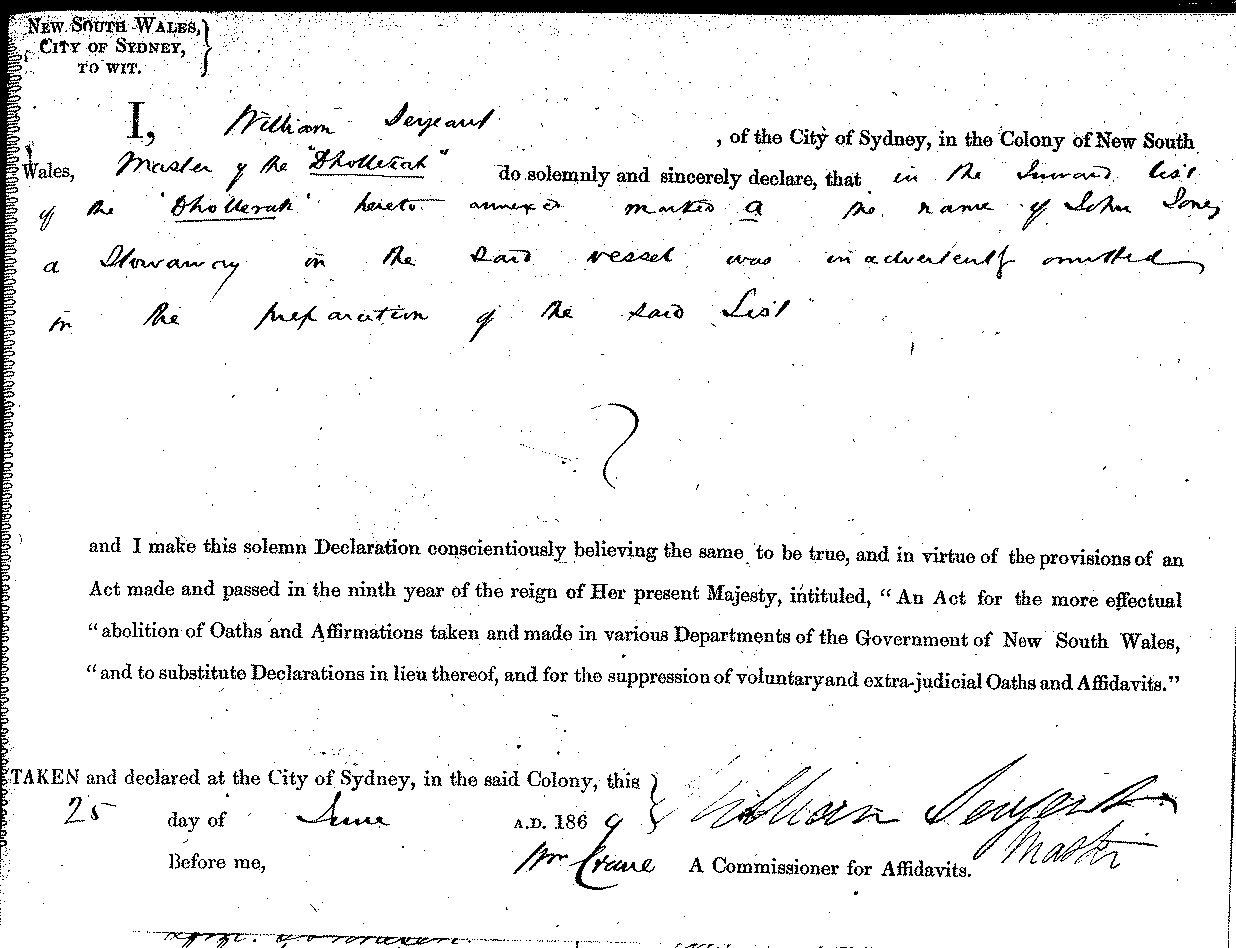 NEW SOUTH WALES,
CITY OF SYDNEY,
TO WIT.
I, William Serjeant , of the City of Sydney, in the Colony of New South
Wales, Master of the "Dhollerah" do solemnly and sincerely declare, that in the Inward list
of the 'Dhollerah' hereto annexed marked a the name of John Jones
a Stowaway in the said vessel was inadvertently omitted
in the preparation of the said List
and I make this solemn Declaration conscientiously believing the same to be true, and in virtue of the provisions of an
Act made and passed in the ninth year of the reign of Her present Majesty, intituled, "An Act for the more effectual
"abolition of Oaths and Affirmations taken and made in various Departments of the Government of New South Wales,
"and to substitute Declarations in lieu thereof, and for the suppression of voluntary and extra-judicial Oaths and Affidavits."
TAKEN and declared at the City of Sydney, in the said Colony, this
25 day of June A.D. 1869 William Serjeant
Master
Before me, Wm Crane A Commissioner for Affidavits.